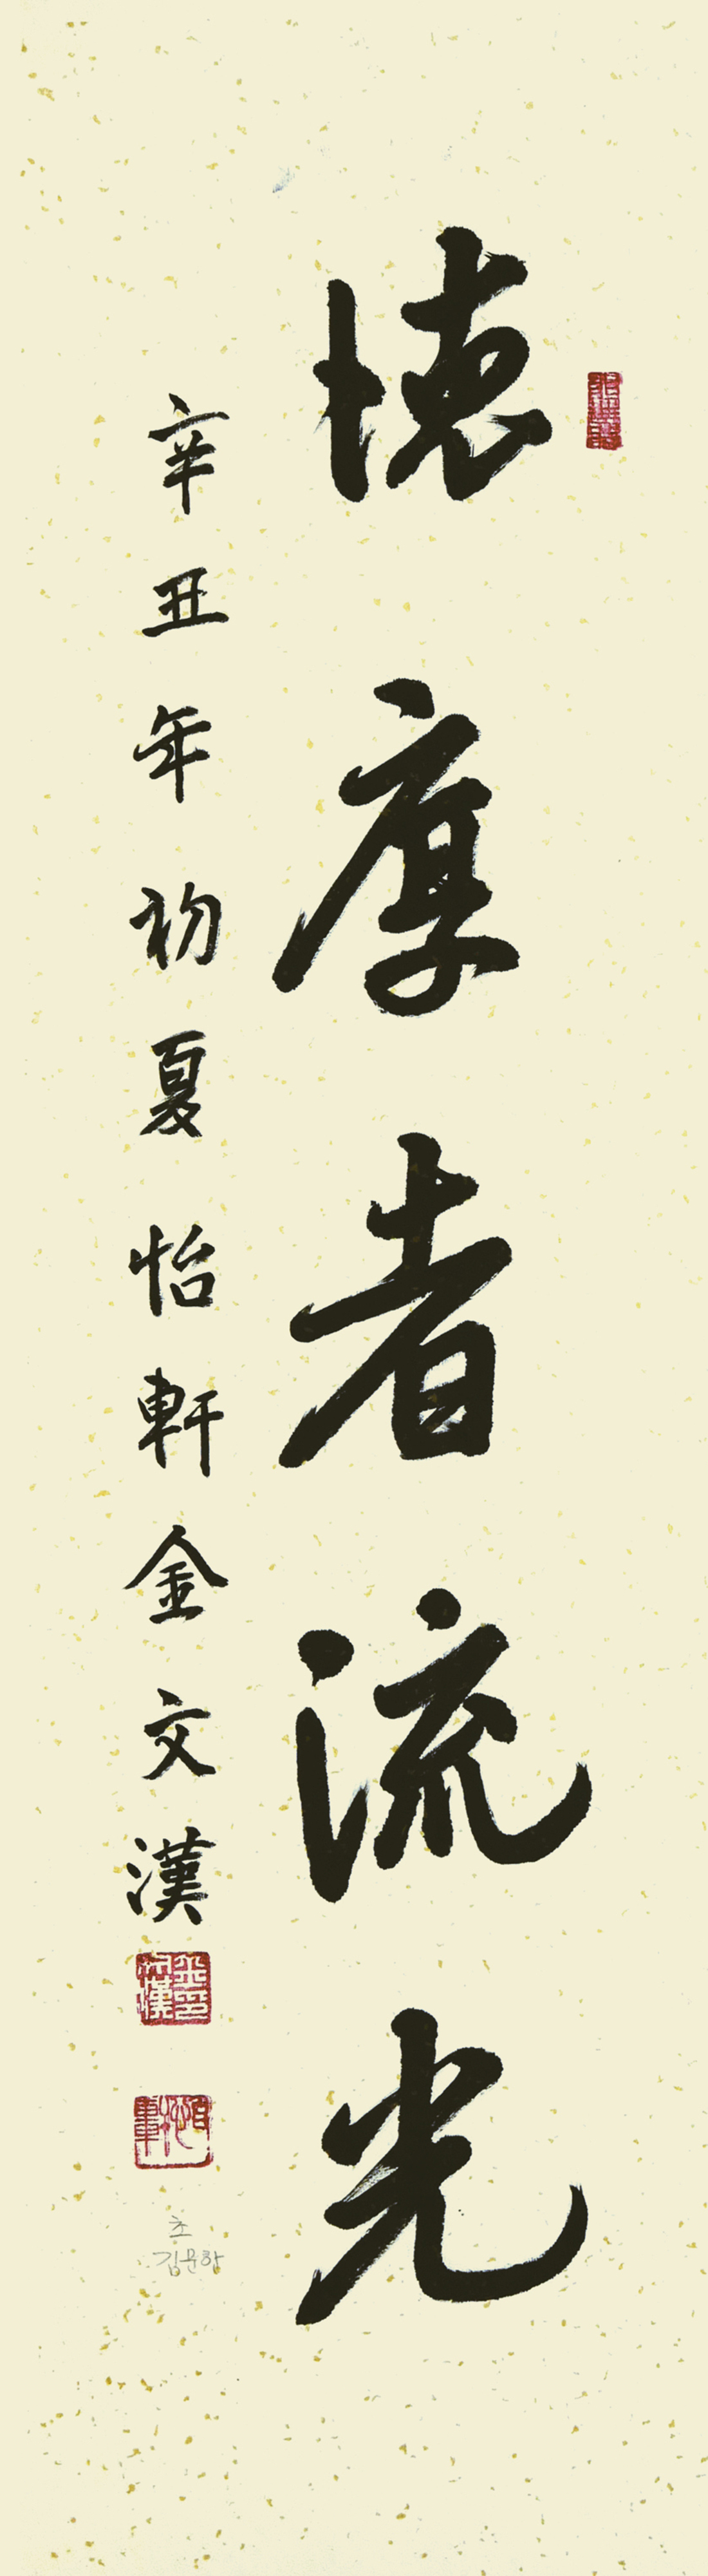 德厚者流光
辛丑年初夏怡軒金文漢
金文漢印
怡軒
초
김문한